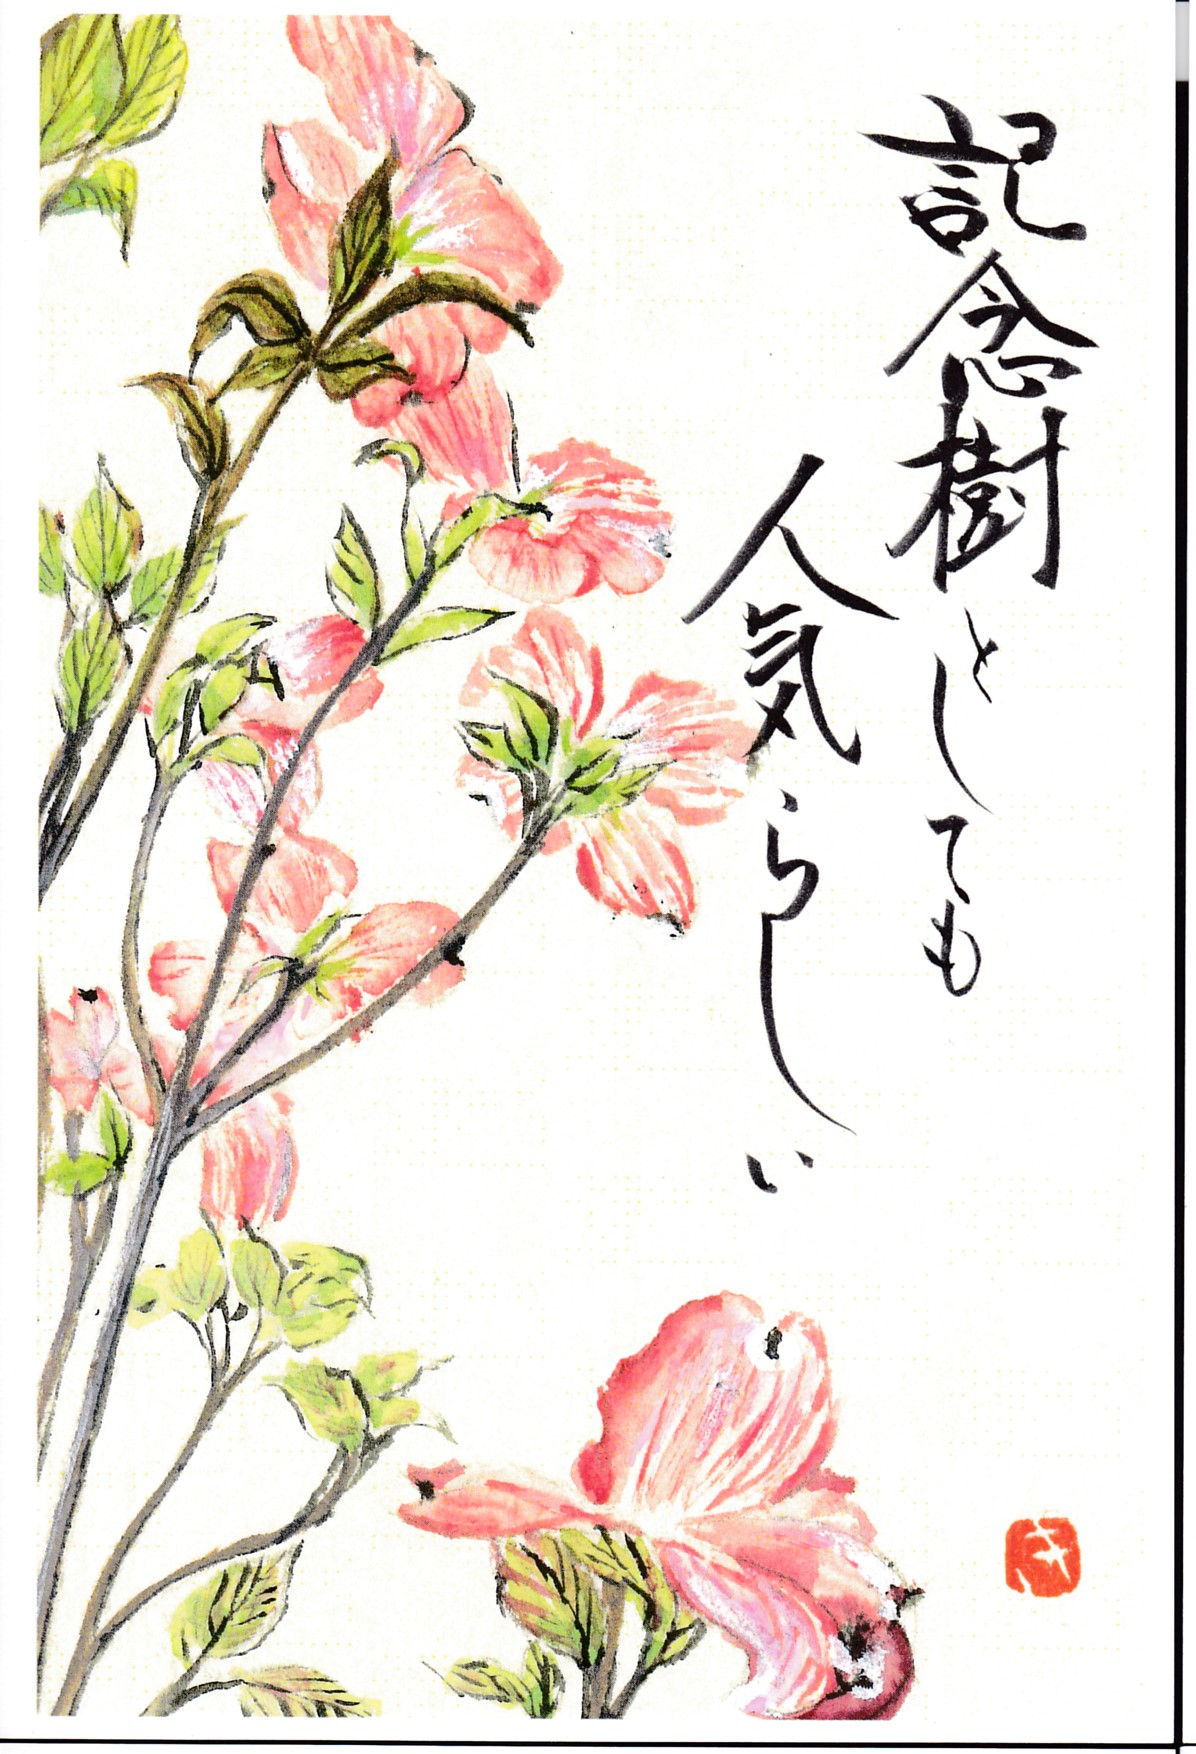 記念樹としても
人気らしい